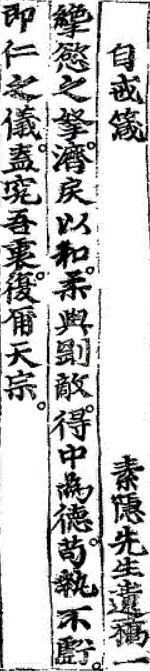 自戒箴
素隱先生遺稿一
孿慾之拏。濟戾以和。柔與剛敵。得中爲德。苟執不虧。
卽仁之儀。蓋究吾裏。復爾天宗。